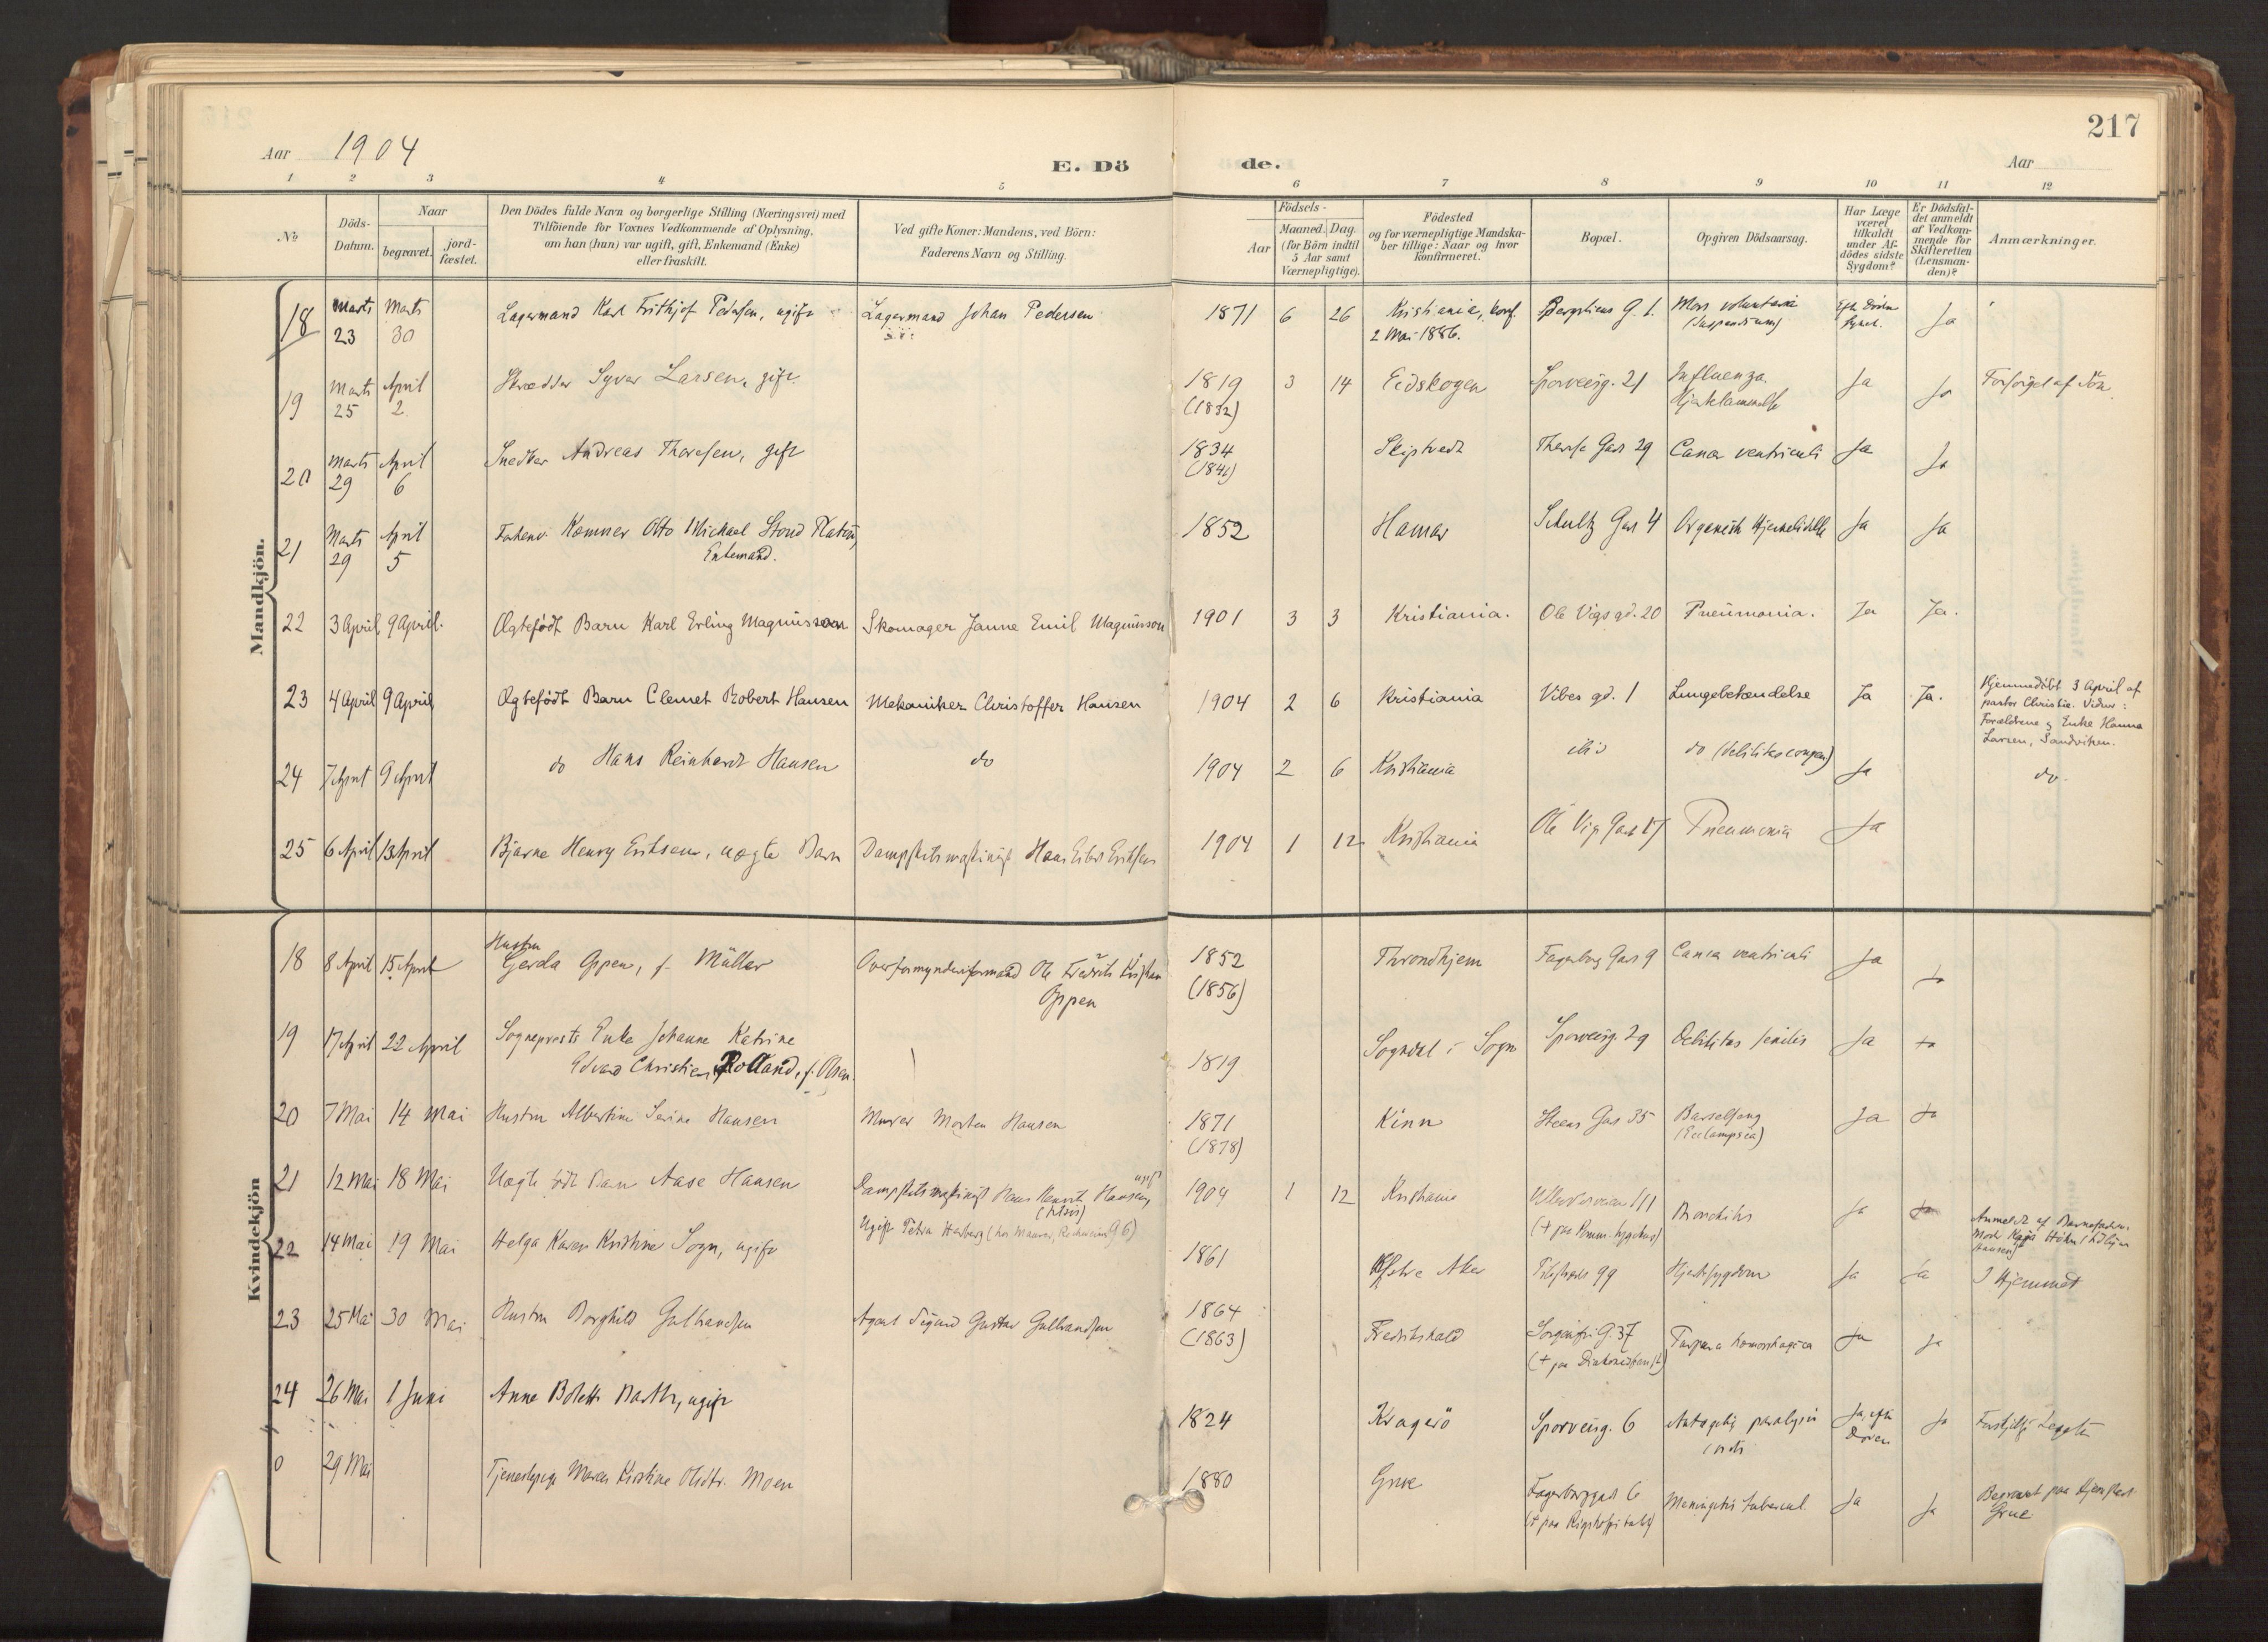 217
Aar 1904 E. Dö de. Aar
1 2 3 4 5 6 7 8 9 10 11 12
№
Döds-Datum.
Naar
begravet.
jord-fæstet.
Den Dödes fulde Navn og borgerlige Stilling (Næringsvei) med
Tilföiende for Voxnes Vedkommende af Oplysning,
om han (hun) var ugift, gift, Enkemand (Enke)
eller fraskilt.
Ved gifte Koner: Mandens, ved Börn:
Faderens Navn og Stilling.
Födsels-
Aar
Maaned. Dag.
(for Börn indtil
5 Aar samt
Værnepligtige).
Födested
og for værnepligtige Mandska-
ber tillige: Naar og hvor
konfirmeret.
Bopæl.
Opgiven Dödsaarsag.
Har Læge
været
tilkaldt
under Af-
dödes sidste
Sygdom?
Er Dödsfal-
det anmeldt
af Vedkom-
mende for
Skifteretten
(Lensman-
den)?
Anmærkninger.
Mandkjön.
18 Marts 23 Marts 30 Lagermand Karl Frithjof Pedersen, ugift Lagermand Johan Pedersen 1871 6 26 Kristiania, konf. 2 Mai 1886. Mors voluntaria (suspendium) Ja
19 Marts 25 April 2 Skrædder Syver Larsen, gift 1819 (1832) 3 14 Eidskogen Sporveisg. 21 Influenza. Hjertelammelse Ja Ja Forsörget af Sön
20 Marts 29 April 6 Snedker Andreas Thoresen, gift 1834 (1841) Skiptvedt Therese Gade 29 Cancer ventriculi Ja Ja
21 Marts 29 April 5 Forhenv. Kæmner Otto Michael Stoud Platou, Enkemand. 1852 Hamar Schultz Gade 4 Organisk Hjertelidelse Ja Ja
22 3 April 9 April. Ægtefödt Barn Karl Erling Magnusson Skomager Janne Emil Magnusson 1901 3 3 Kristiania. Ole Vigs gd. 20 Pneumonia. Ja Ja.
23 4 April 9 April Ægtefödt Barn Clemet Robert Hansen Mekaniker Christoffer Hansen 1904 2 6 Kristiania Vibes gd. 1 Lungebetændelse Ja Ja. Hjemmedöbt 3 April af
pastor Christie. Vidner:
Forældrene og Enke Hanna
Larsen, Sandviken.
24 7 April 9 April do Hans Reinhardt Hansen do 1904 2 6 Kristiania ibid do (debilitas congen) Ja do.
25 6 April 13 April Bjarne Henry Eriksen, uægte Barn Dampskibsmaskinist Hans Eriksen 1904 1 12 Kristiania Ole Vigs Gade 17 Pneumonia Ja
Kvindekjön
18 8 April 15 April Hustru Gerda Oppen, f. Müller Overformynderiformand Ole Fredrik Kristian Oppen 1852 (1856) Throndhjem Fagerborg Gade 9 Cancer ventriculi Ja Ja
19 17 April 22 April Sogneprests Enke Johanne Katrine
Edvard Christien Rolland, f. Olsen. 1819 Sogndal i Sogn Sporveisg. 29 Debilitas senilis Ja Ja
20 7 Mai 14 Mai Hustru Albertine Serine Hansen Murer Morten Hansen 1871 (1878) Kinn Steens Gade 35 Barselseng (Eclampsia) Ja Ja
21 12 Mai 18 Mai Uægte födt Barn Aase Hansen Dampskibsmaskinist Hans Hansen, ugift 1904 1 12 Kristiania Ullevoldsveien 111 Bronchitis Ja Ja Anmeldt af
22 14 Mai 19 Mai Helga Karen Kristine Sogn, ugift 1861 Vestre Aker Pilestrædet 99 Hjertesygdom Ja Ja I Hjemmet
23 25 Mai 30 Mai Hustru Borghild Gulbrandsen Agent Sigurd Gustav Gulbrandsen 1864 (1863) Fredrikshald Sorgenfri G. 37 Purpura hæmorrhagica Ja Ja
24 26 Mai 1 Juni Anne Bolette Barth, ugift 1824 Kragerö Sporveisg. 6 Ja
0 29 Mai Tjenestepige Maren Kirstine Olsdtr. Moen 1880 Grue Fagerborggade 6 (+ paa Rigshospitalet) Meningitis tubercul. Ja Ja Begravet paa Hjemstedet Grue